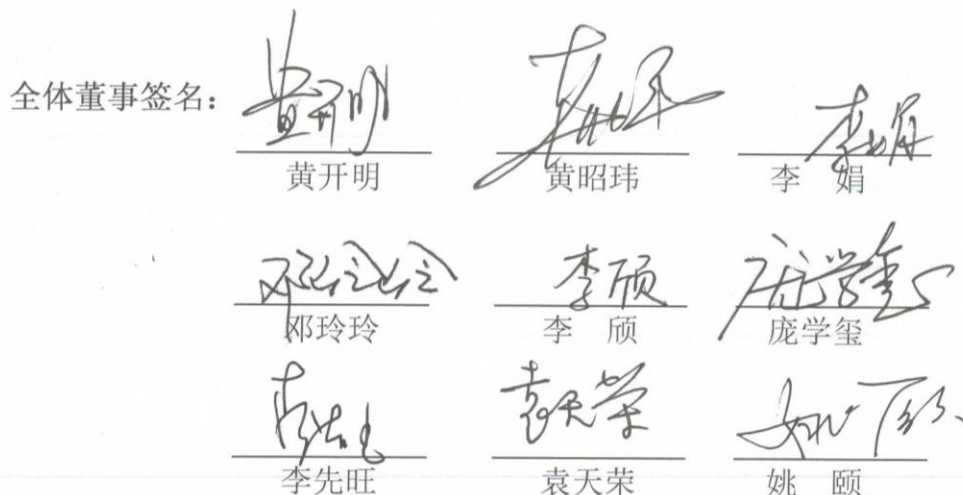 全体董事签名：
黄开明 黄昭玮 李 娟
邓玲玲 李 颀 庞学玺
李先旺 袁天荣 姚 颐